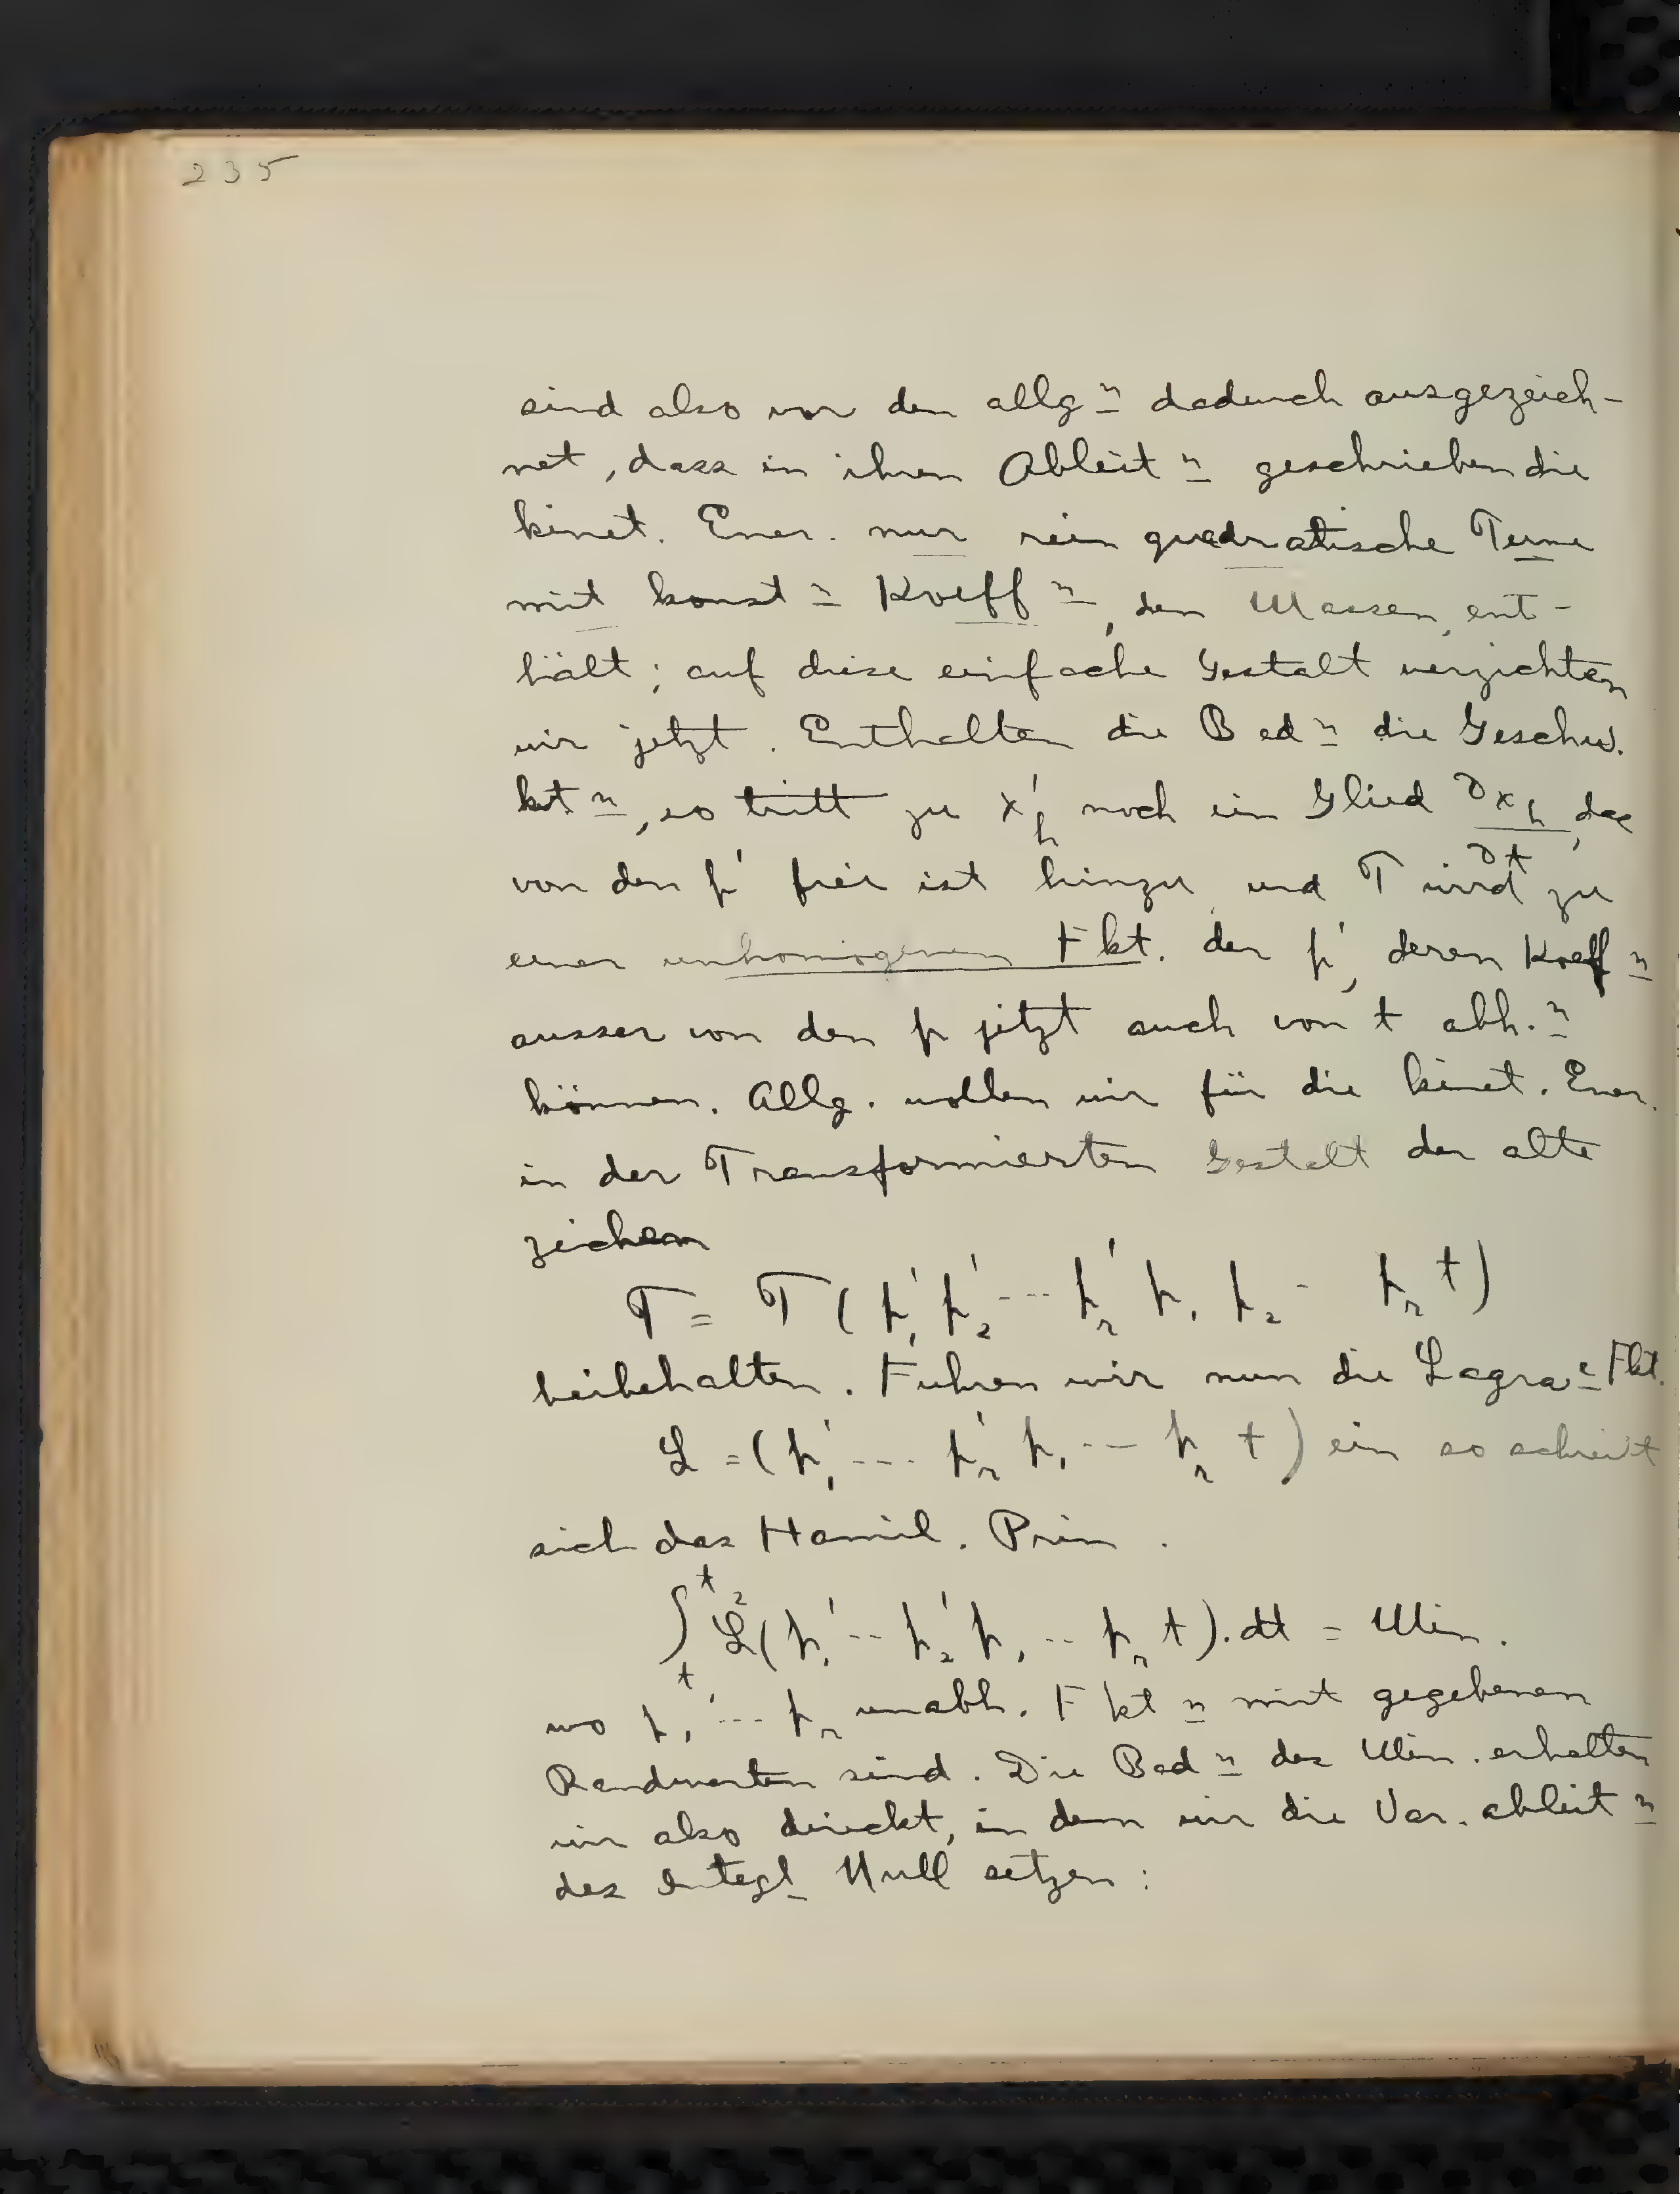 235
sind also vor den allg n dadurch ausgezeich-
net, dass in ihren Ableit n geschrieben die
kinet. Ener. nur rein quadratische Terme
mit konst n Koeff n, den Massen, ent-
hält; auf diese einfache Gestalt verzichten
wir jetzt. Enthalten die Bed n die Geschw.
kt n, so tritt zu x'_h noch ein Glied ∂x_h/∂t, das
von den p' frei ist hinzu und T wird zu
einer unhomogenen Fkt. der p', deren Koeff n
ausser von den p jetzt auch von t abh. n
können. Allg. wollen wir für die kinet. Ener.
in der Transformierten Gestalt der alte
zeichen
T = T(p'_1 p'_2 --- p'_r p_1 p_2 - p_r t)
beibehalten. Fuhren wir nun die Lagra e Fkt.
L = (p'_1 --- p'_r p_1 --- p_r t) ein so schreibt
sich das Hamil. Prin.
∫_{t_1}^{t_2} L(p'_1 -- p'_2 p_1 -- p_r t).dt = Min.
wo p_1 --- p_r unabh. Fkt n mit gegebenen
Randwerten sind. Die Bed n des Min. erhalten
wir also direckt, in dem wir die Var. ableit n
des Integl Null setzen: